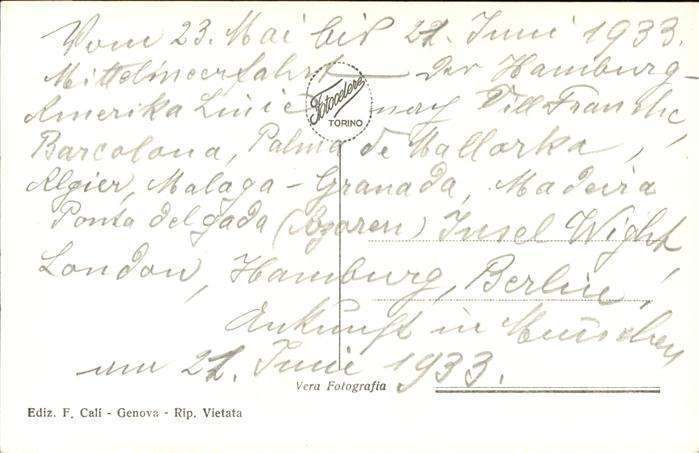 Vom 23. Mai bis 21. Juni 1933.
Mittelmeerfahrt der Hamburg-
Amerika Linie nach Villfranche,
Fotocelere
TORINO
Barcolona, Palma de Mallorka,
Algier, Malaga - Granada, Madeira
Ponta delgada (Azoren) Insel Wight,
London, Hamburg, Berlin,
Ankunft in München
um 21. Junie 1933.
Vera Fotografia
Ediz. F. Calì - Genova - Rip. Vietata